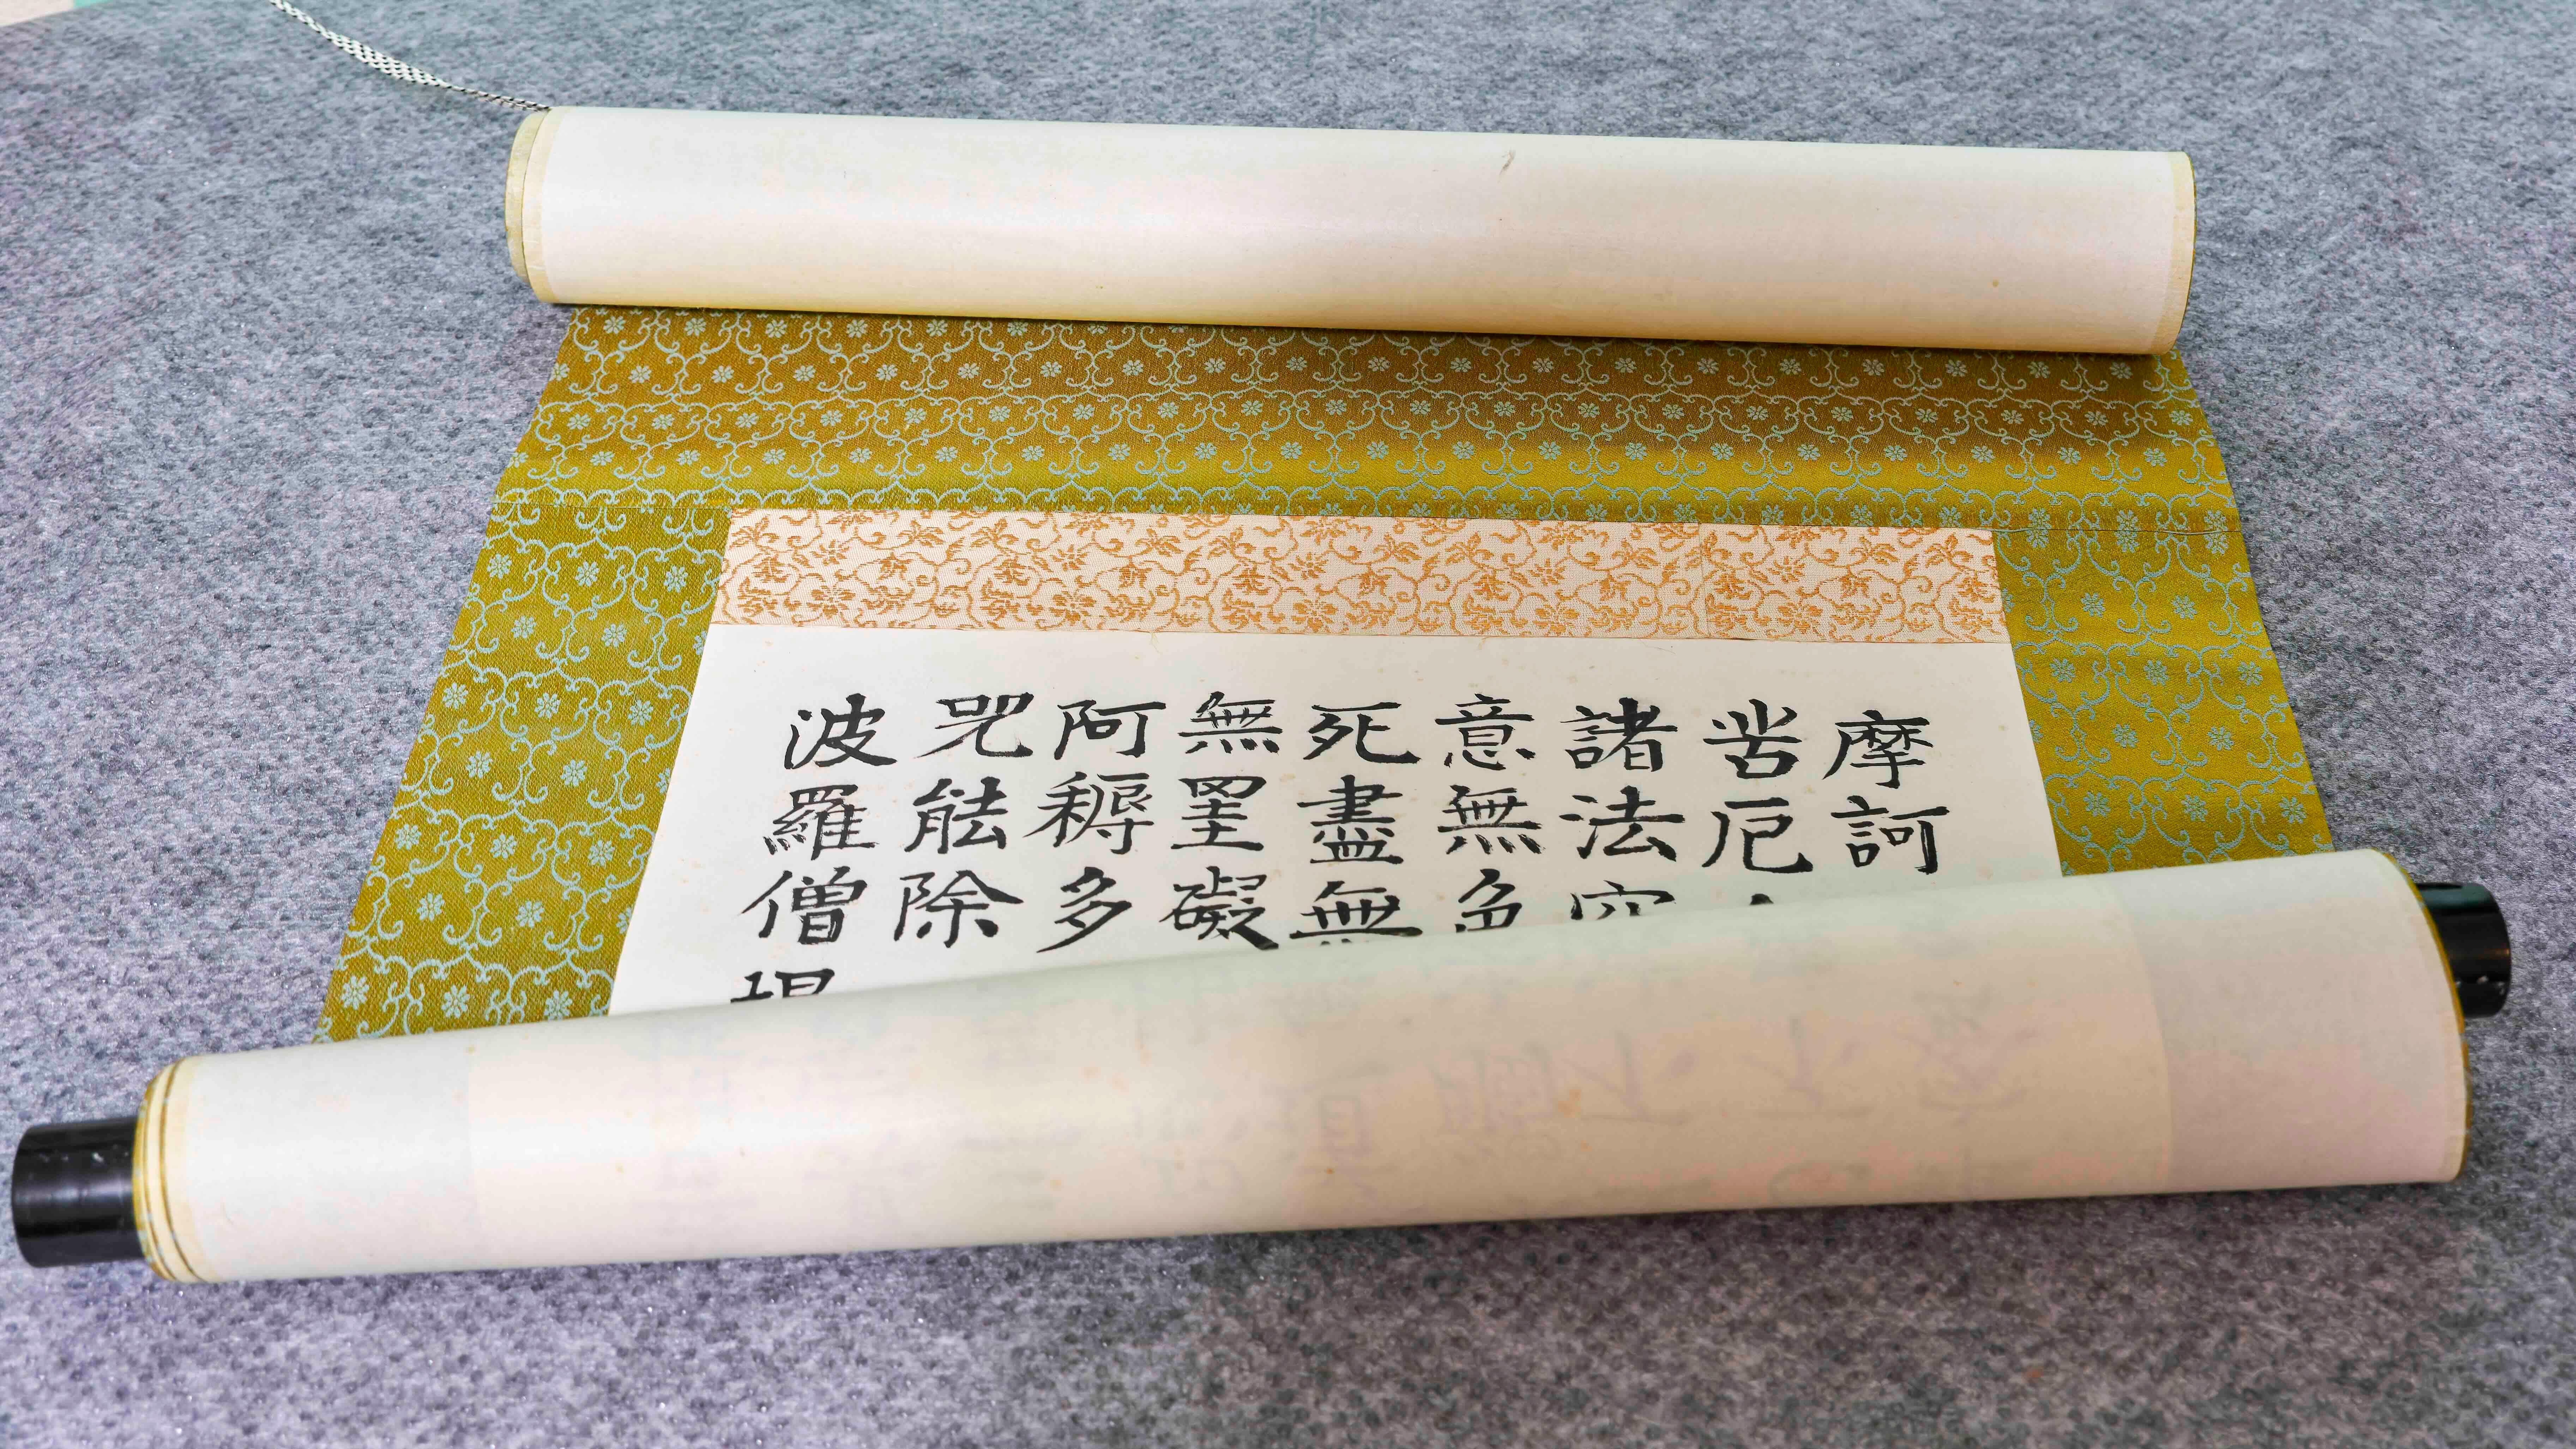 摩訶
苦厄
諸法空
意無色
死盡無
無罣礙
阿耨多
咒能除
波羅僧揭